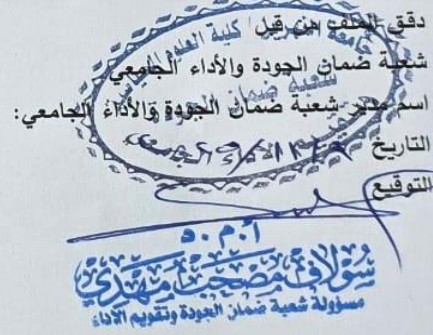 دقق الملف من قبل
شعبة ضمان الجودة والأداء الجامعي
اسم مدير شعبة ضمان الجودة والأداء الجامعي:
التاريخ
التوقيع
أ.م.د
سولاف مصحب مهدي
مسؤولة شعبة ضمان الجودة وتقويم الأداء